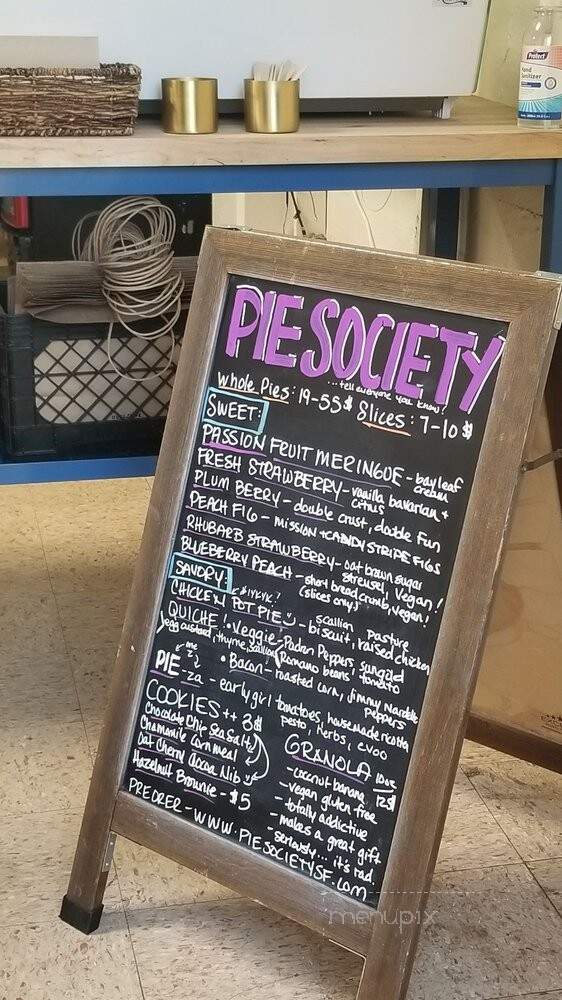 PIE SOCIETY
...tell everyone you know!
Whole Pies: 19-55$ Slices: 7-10$
SWEET:
PASSION FRUIT MERINGUE - bay leaf cream
FRESH STRAWBERRY - vanilla bavarian + citrus
PLUM BERRY - double crust, double fun
PEACH FIG - MISSION + CANDY STRIPE FIGS
RHUBARB STRAWBERRY - oat brown sugar streusel, Vegan!
BLUEBERRY PEACH - short bread crumb, vegan!
(slices only)
SAVORY:
CHICKEN POT PIE - scallion biscuit, pasture raised chicken
QUICHE: • Veggie - Padron Peppers, sungold tomato
egg custard, thyme, scallion Romano beans,
• Bacon - roasted corn, Jimmy Nardello Peppers
PIE-za - early girl tomatoes, housemade ricotta
pesto, herbs, evoo
COOKIES ++ 3$
Chocolate Chip Sea Salt
Chamomile Cornmeal
Oat Cherry Cocoa Nib
Hazelnut Brownie - $5
GRANOLA 10oz 12$
- coconut banana
- vegan gluten free
- totally addictive
- makes a great gift
- seriously... it's rad.
PREORER - WWW.PIESOCIETYSF.COM
Protect
Hand Sanitizer
menupix